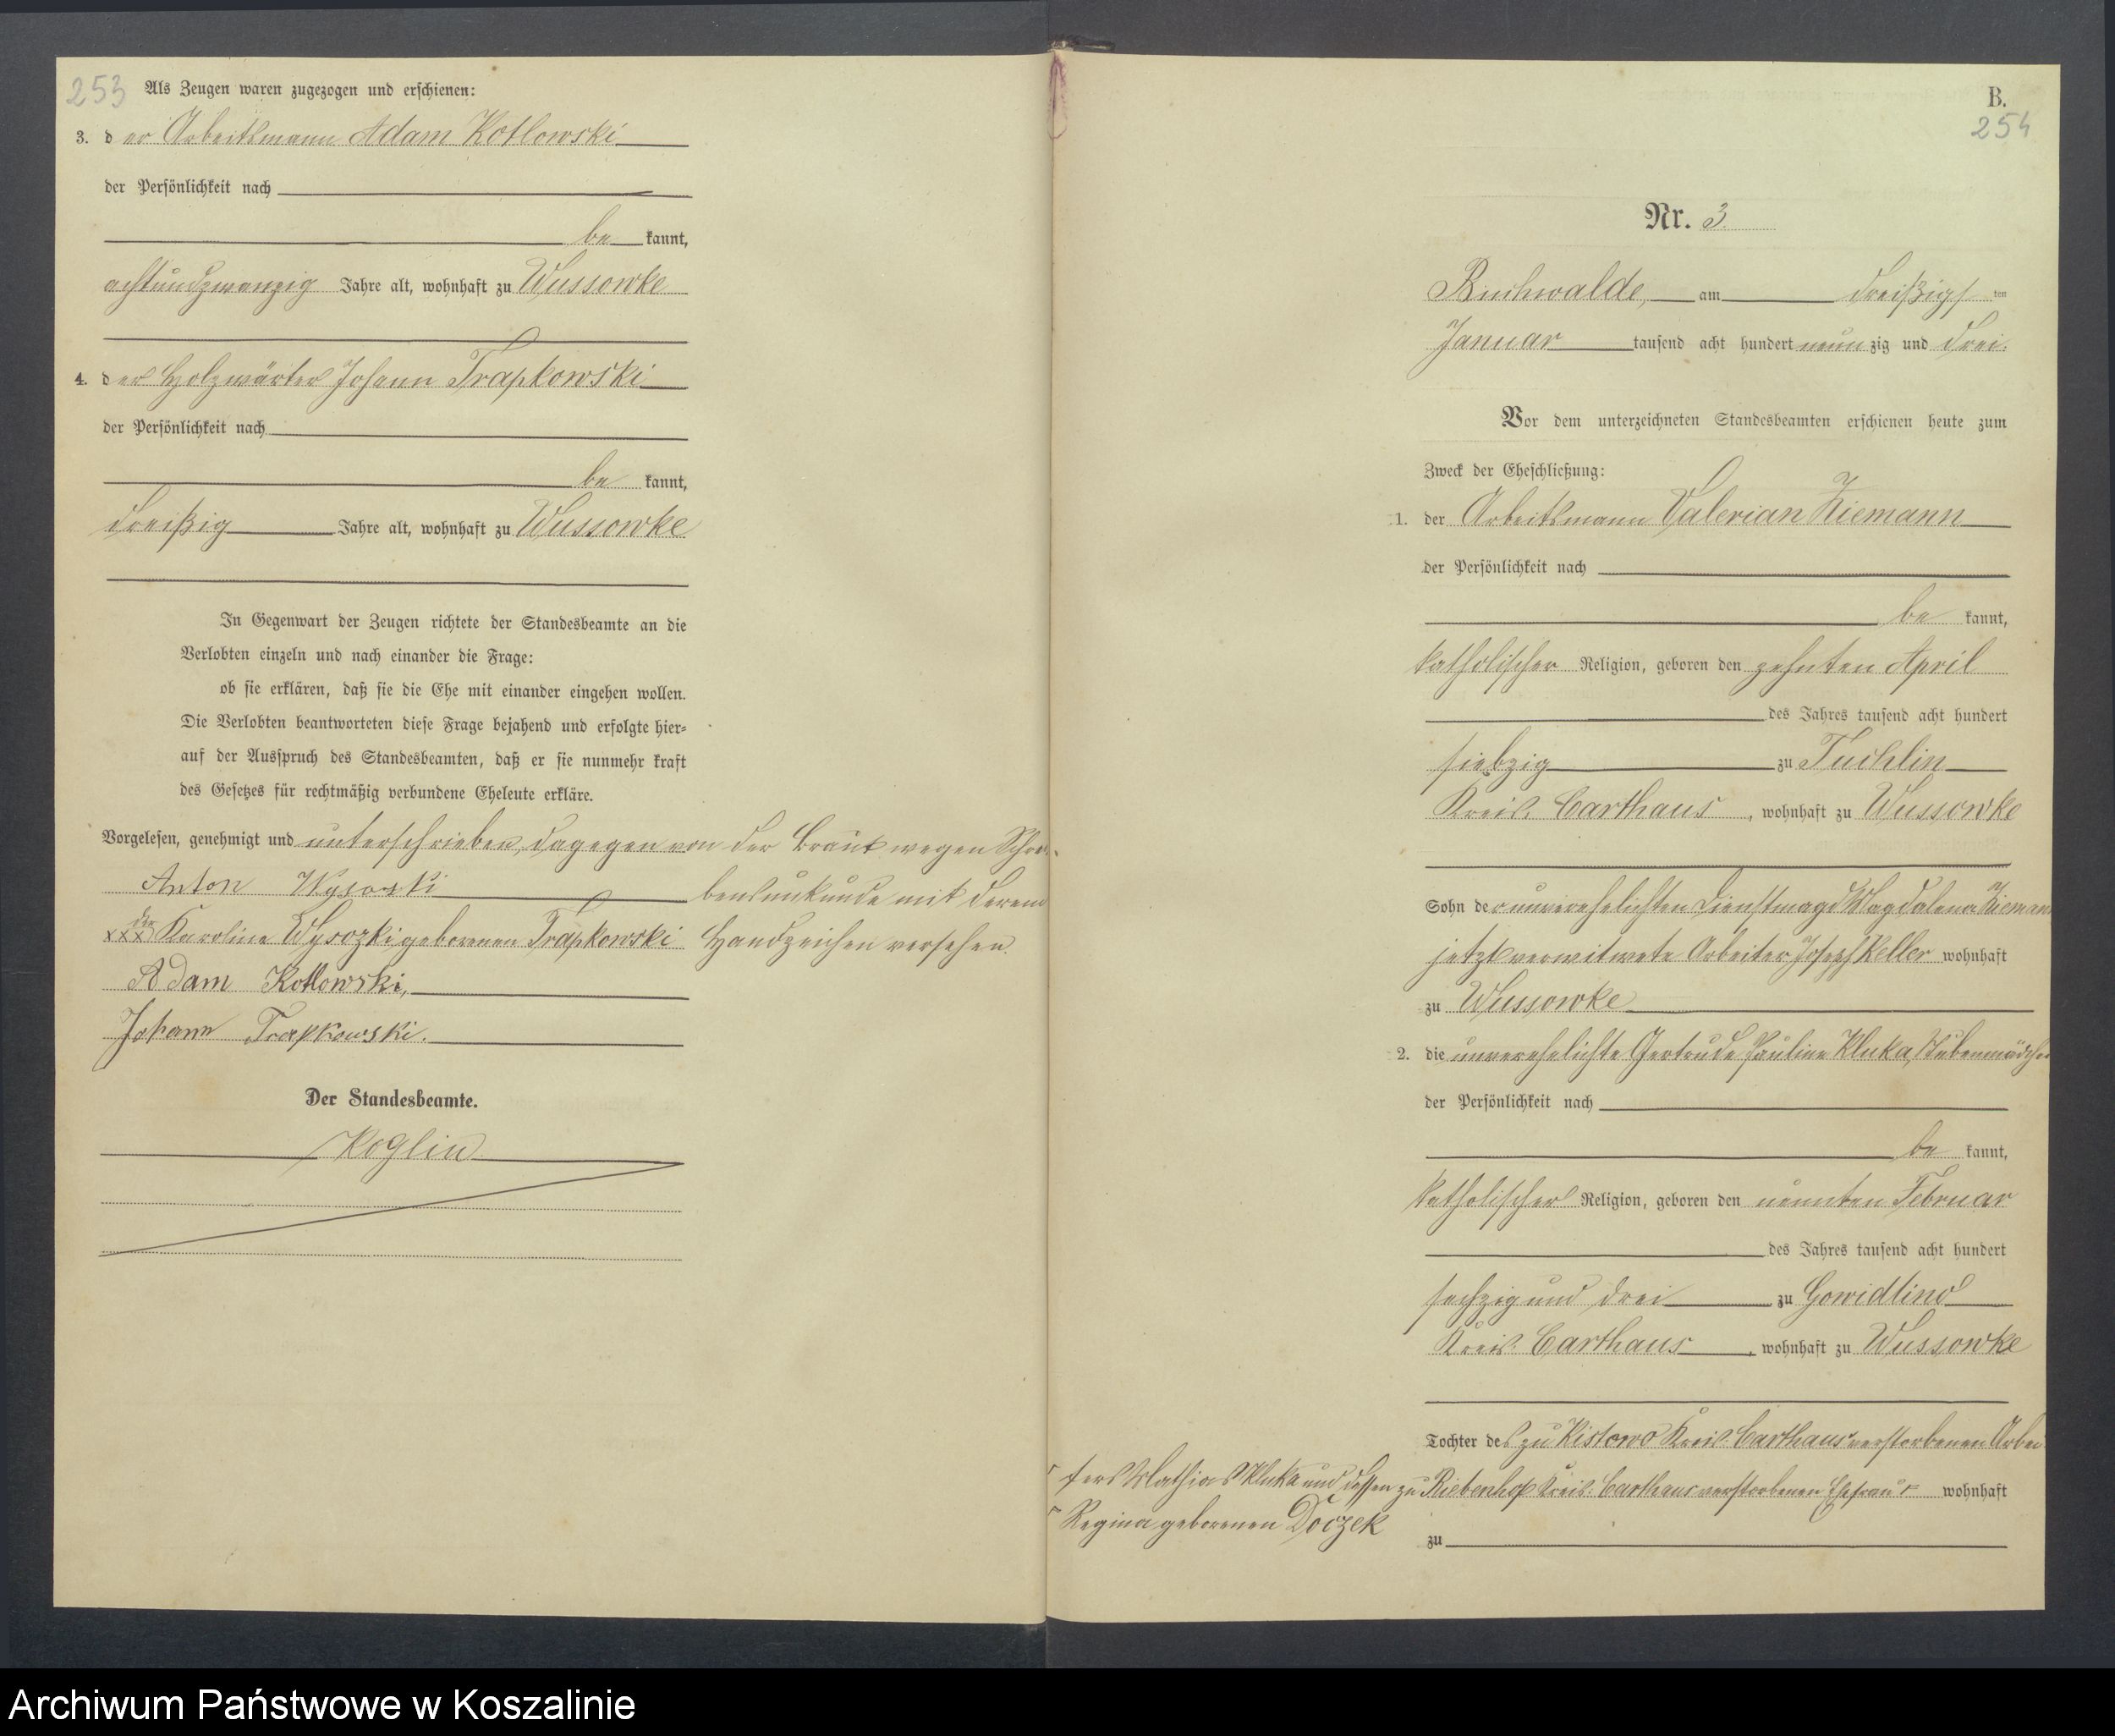 253
Als Zeugen waren zugezogen und erschienen:
3. der Arbeitsmann Adam Kotlowski
der Persönlichkeit nach
be kannt,
achtundzwanzig Jahre alt, wohnhaft zu Wussowke
4. der Holzwärter Johann Trapkowski
der Persönlichkeit nach
be kannt,
dreißig Jahre alt, wohnhaft zu Wussowke
In Gegenwart der Zeugen richtete der Standesbeamte an die
Verlobten einzeln und nach einander die Frage:
ob sie erklären, daß sie die Ehe mit einander eingehen wollen.
Die Verlobten beantworteten diese Frage bejahend und erfolgte hier-
auf der Ausspruch des Standesbeamten, daß er sie nunmehr kraft
des Gesetzes für rechtmäßig verbundene Eheleute erkläre.
Vorgelesen, genehmigt und unterschrieben, dagegen von der Braut wegen Schrei-
bensunkunde mit deren
Handzeichen versehen.
Anton Wysozki
xxx der Karoline Wysozki geborenen Trapkowski
Adam Kotlowski,
Johann Trapkowski.
Der Standesbeamte.
Koglin
B.
254
Nr. 3.
Buchwalde, am dreißigsten
Januar tausend acht hundert neunzig und drei.
Vor dem unterzeichneten Standesbeamten erschienen heute zum
Zweck der Eheschließung:
1. der Arbeitsmann Valerian Ziemann
der Persönlichkeit nach
be kannt,
katholischer Religion, geboren den zehnten April
des Jahres tausend acht hundert
siebzig zu Tuchlin
Kreis Carthaus, wohnhaft zu Wussowke
Sohn der unverehelichten Dienstmagd Magdalena Ziemann
jetzt verwitwete Arbeiter Joseph Keller wohnhaft
zu Wussowke
2. die unverehelichte Gertrude Pauline Kluka, Stubenmädchen
der Persönlichkeit nach
be kannt,
katholischer Religion, geboren den neunten Februar
des Jahres tausend acht hundert
sechzig und drei zu Gowidlino
Kreis Carthaus, wohnhaft zu Wussowke
Tochter des zu Kistowo Kreis Carthaus verstorbenen Arbei-
ters Mathias Kluka und dessen zu Riebenhof Kreis Carthaus verstorbenen Ehefrau wohnhaft
Regina geborenen Doczek
zu
Archiwum Państwowe w Koszalinie